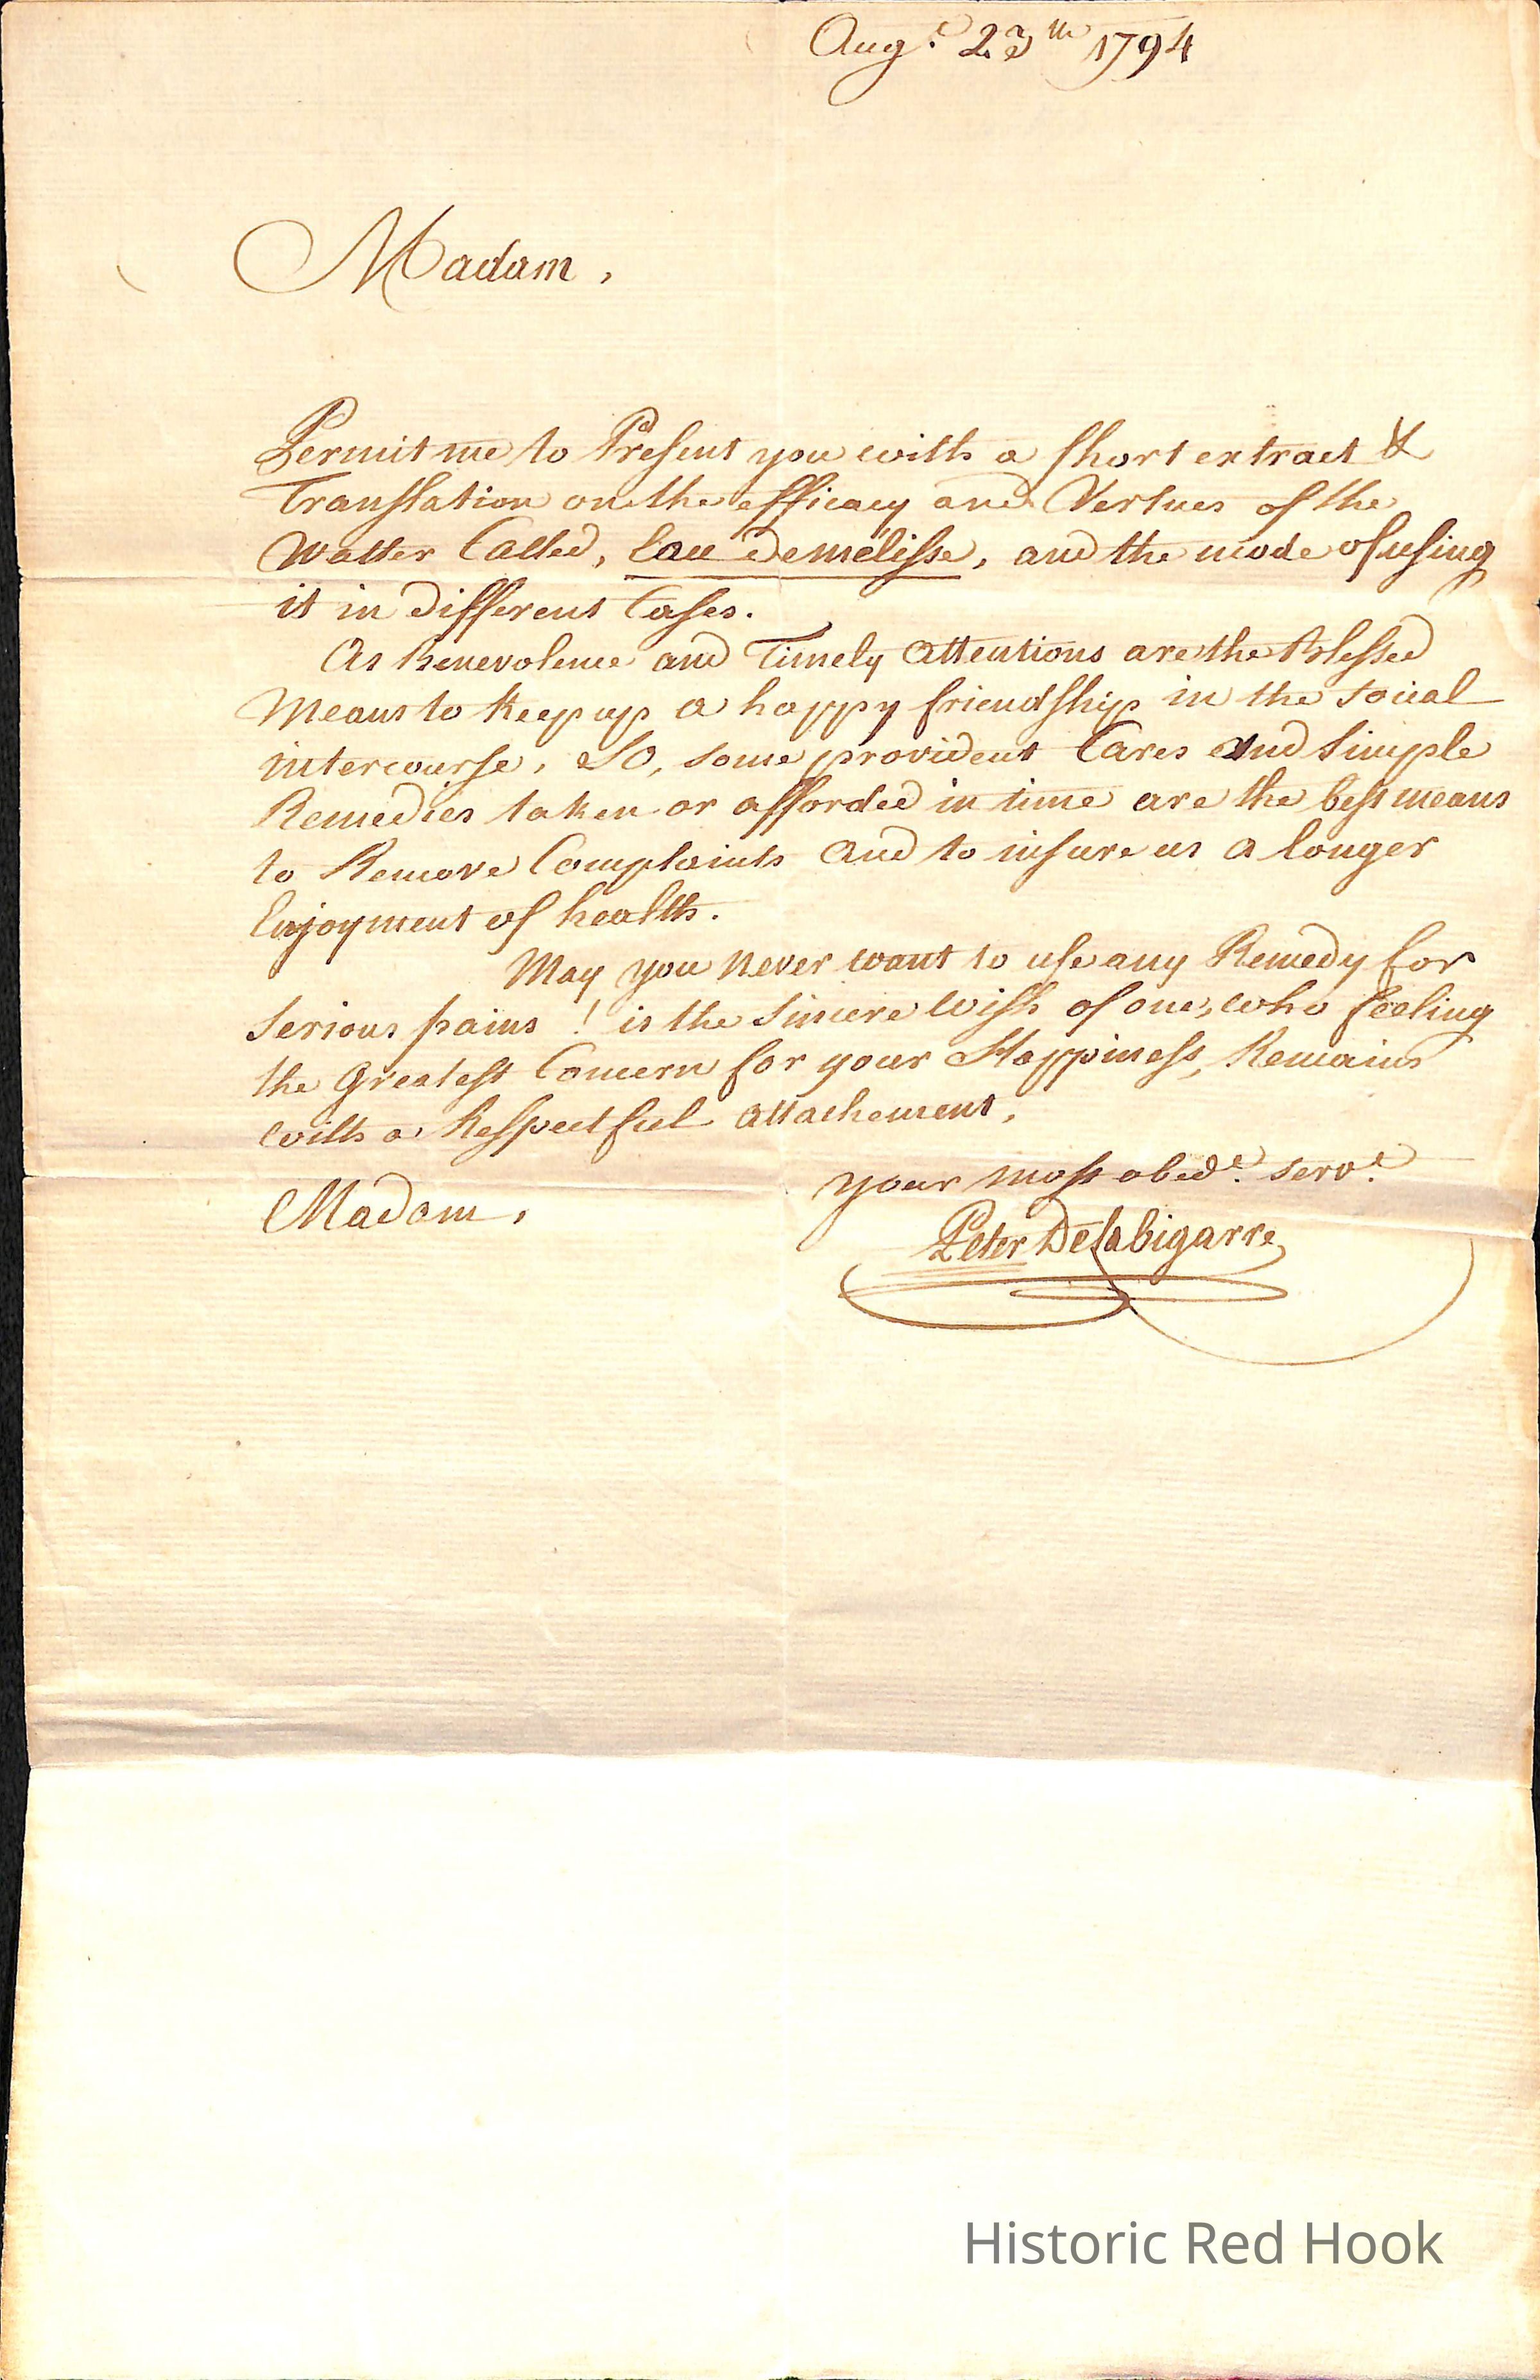 Augt. 23th 1794
Madam,
Permit me to Present you with a short extract &
Translation on the efficacy and Vertues of the
Watter Called, Eau de mélisse, and the mode of using
it in different Cases.
As Benevolence and Timely attentions are the Blessed
Means to keep up a happy friendship in the social
intercourse, So, some provident Cares and simple
Remedies taken or afforded in time are the best means
to Remove Complaints and to insure us a longer
Enjoyment of health.
May you never want to use any Remedy for
serious pains ! is the sincere wish of one, who feeling
the Greatest Concern for your Happiness, Remains
with a Respectful attachement,
your most obedt. servt.
Madam,
Peter Delabigarre
Historic Red Hook